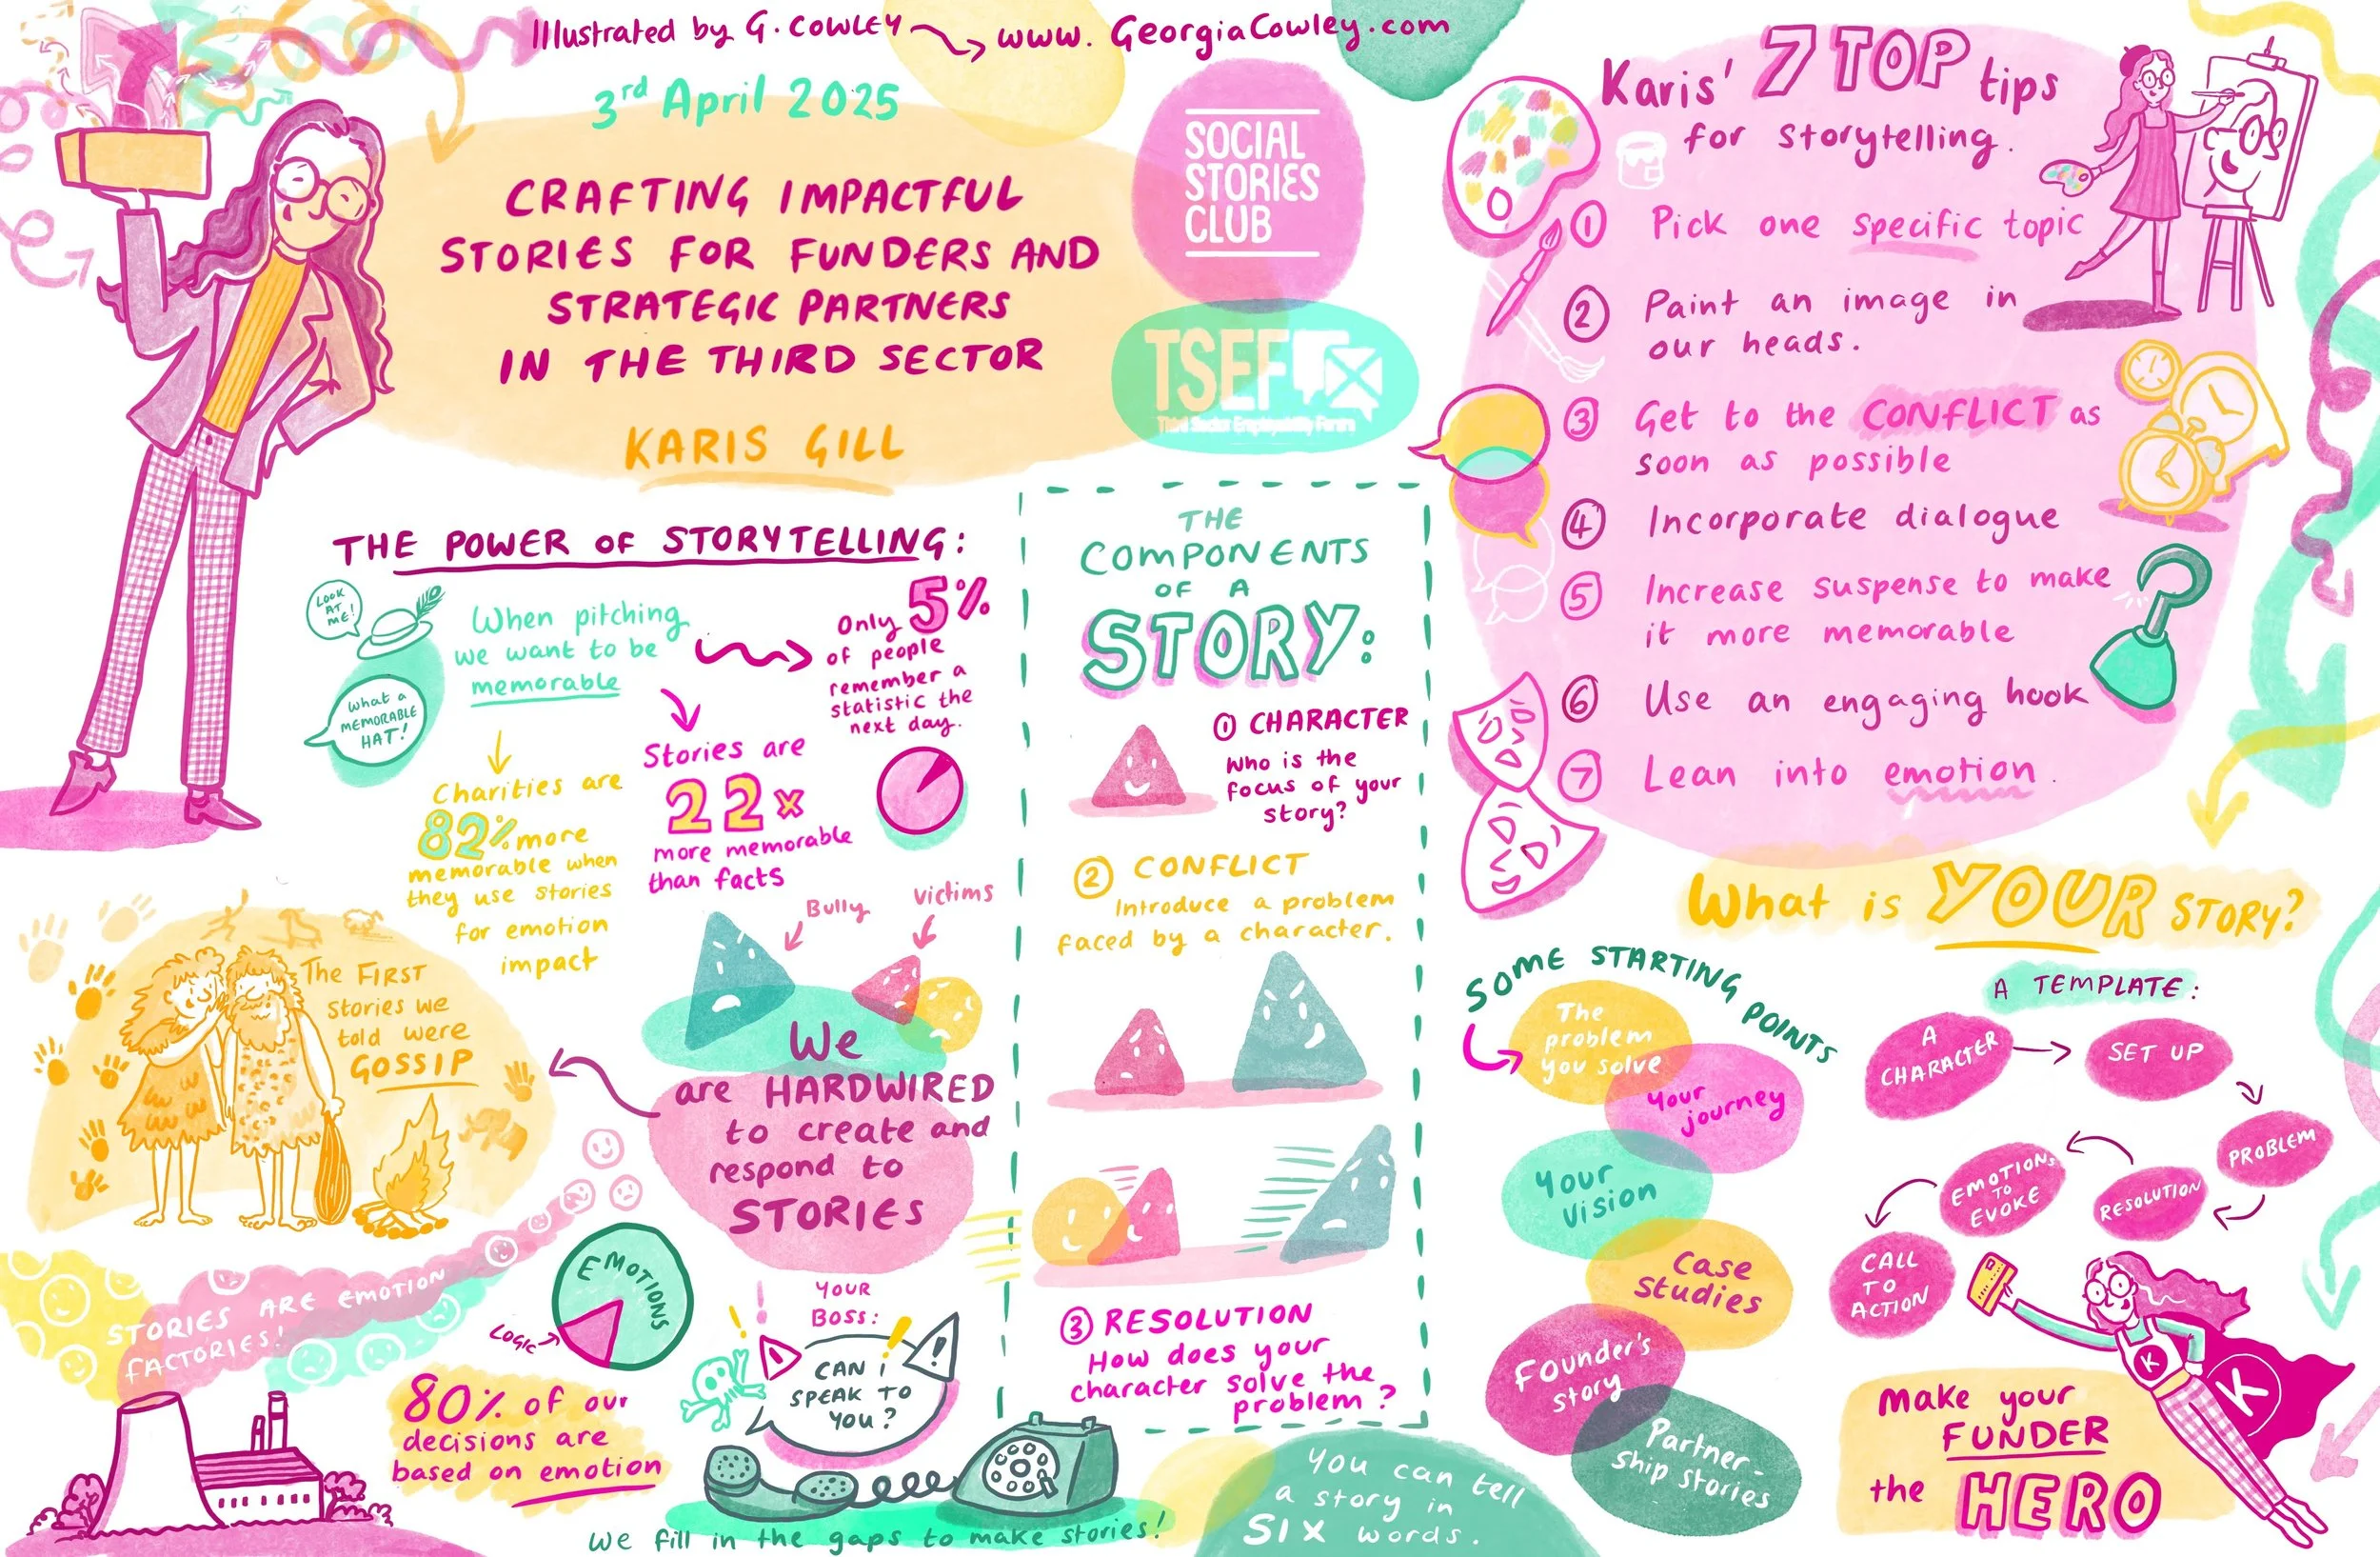 Illustrated by G. COWLEY
www.GeorgiaCowley.com
3rd April 2025
CRAFTING IMPACTFUL
STORIES FOR FUNDERS AND
STRATEGIC PARTNERS
IN THE THIRD SECTOR
KARIS GILL
SOCIAL
STORIES
CLUB
TSEF
Third Sector Employability Forum
THE POWER OF STORYTELLING:
LOOK
AT
ME!
What a
MEMORABLE
HAT!
When pitching
we want to be
memorable
Only 5%
of people
remember a
statistic the
next day.
Stories are
22x
more memorable
than facts
Charities are
82% more
memorable when
they use stories
for emotion
impact
Bully
victims
We
are HARDWIRED
to create and
respond to
STORIES
The FIRST
stories we
told were
GOSSIP
STORIES ARE EMOTION
FACTORIES!
EMOTIONS
LOGIC
80% of our
decisions are
based on emotion
YOUR
BOSS:
CAN I
SPEAK TO
YOU?
We fill in the gaps to make stories!
THE
COMPONENTS
OF A
STORY:
1 CHARACTER
Who is the
focus of your
story?
2 CONFLICT
Introduce a problem
faced by a character.
3 RESOLUTION
How does your
character solve the
problem?
You can tell
a story in
SIX words.
Karis' 7 TOP tips
for storytelling.
1 Pick one specific topic
2 Paint an image in
our heads.
3 Get to the CONFLICT as
soon as possible
4 Incorporate dialogue
5 Increase suspense to make
it more memorable
6 Use an engaging hook
7 Lean into emotion.
What is YOUR STORY?
SOME STARTING POINTS
The
problem
you solve
Your
journey
Your
vision
Case
studies
Founder's
story
Partner-
ship stories
A TEMPLATE:
A
CHARACTER
SET UP
PROBLEM
RESOLUTION
EMOTIONS
TO
EVOKE
CALL
TO
ACTION
K
K
Make your
FUNDER
the HERO